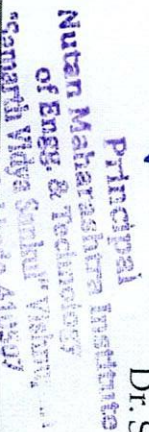 Principal
Nutan Maharashtra Institute
of Engg. & Technology
"Samarth Vidya Sankul"
Dr. S